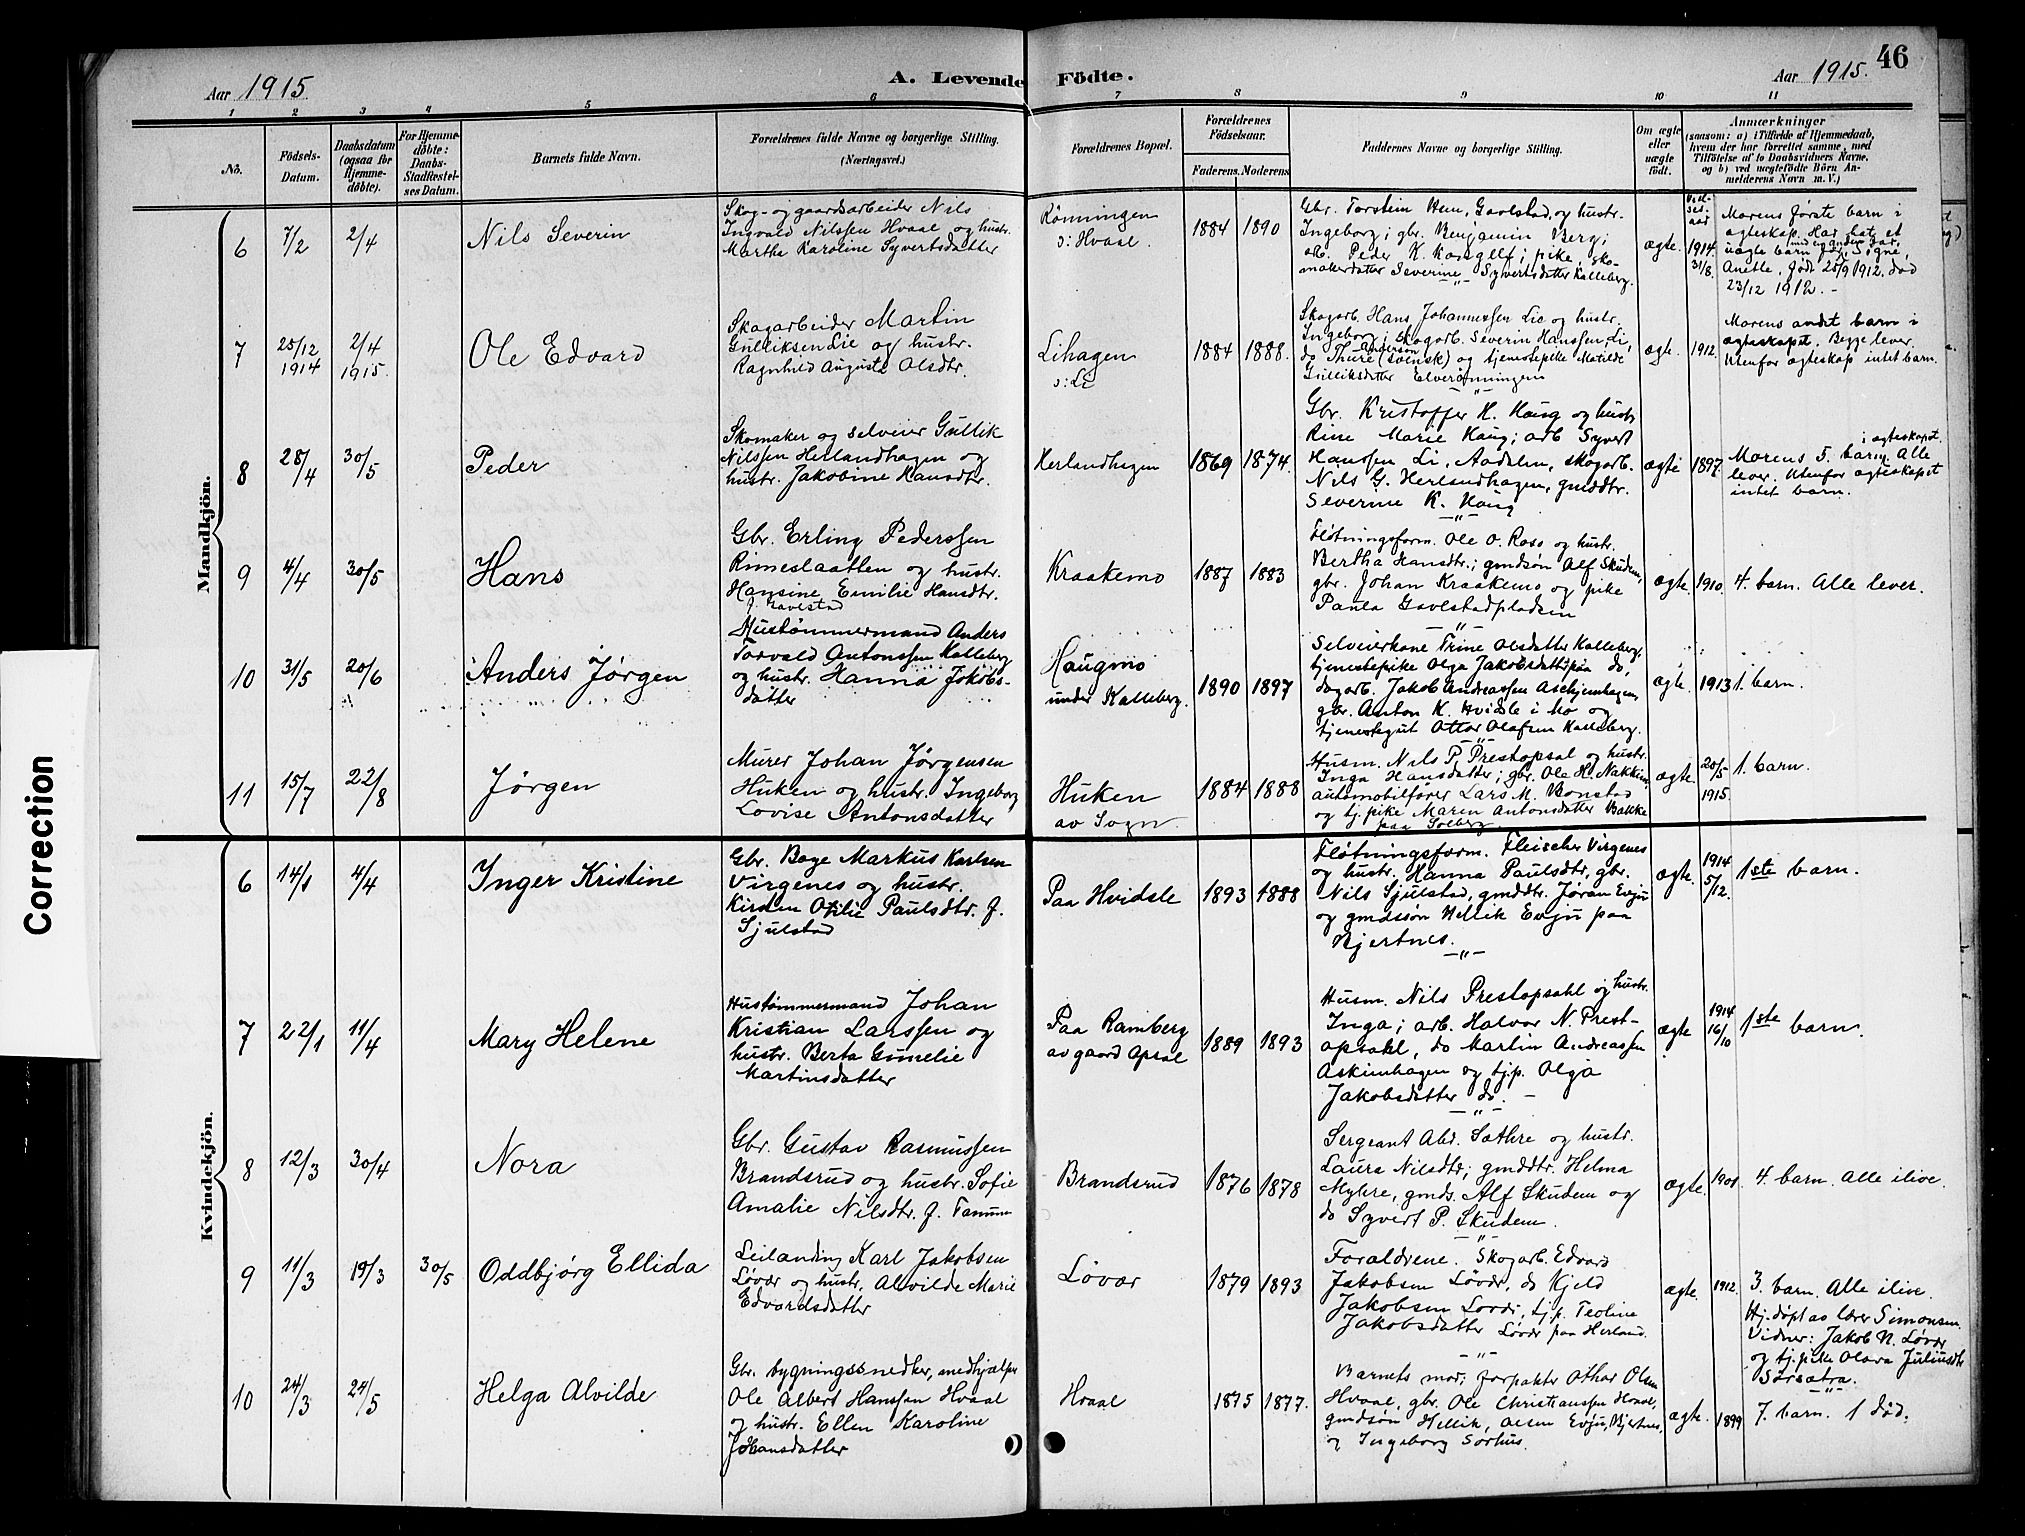 Aar 1915
A. Levende Födte.
Aar 1915. 46
1 2 3 4 5 6 7 8 9 10 11
No.
Födsels-
Datum.
Daabsdatum
(ogsaa for
Hjemme-
döbte).
For Hjemme-
döbte:
Daabs-
Stadfæstel-
ses Datum.
Barnets fulde Navn.
Forældrenes fulde Navne og borgerlige Stilling.
(Næringsvei.)
Forældrenes Bopæl.
Forældrenes
Födselsaar.
Faderens. Moderens
Faddernes Navne og borgerlige Stilling.
Om ægte
eller
uægte
født.
Anmærkninger
(saasom: a) i Tilfælde af Hjemmedaab,
hvem der har forrettet samme, med
Tilföielse af to Daabsvidners Navne,
og b) ved uægtefödte Börn An-
melderens Navn m. V.)
Mandkjön.
6 7/2 2/4
Nils Severin
Skog- og gaardsarbeider Nils
Ingvald Nilssen Hvaal og hustr.
Martha Karoline Syvertsdatter
Rønningen
s: Hvaal.
1884 1890
Gbr. Torstein Hem, Gavlstad, og hustr.
Ingeborg; gbr. Benjamin Berg;
arb. Peder K. Kaugelf; pike, sko-
makerdatter Severine Syvertsdatter Kalleberg.
ægte.
Viel-
ses-
aar
1914.
31/8.
Morens første barn i
ægteskap. Har hat et
uægte barn med en anden far,
Anette, født 25/9 1912. død
23/12 1912. -
7 25/12 1914 2/4 1915.
Ole Edvard
Skogarbeider Martin
Gulliksen Lie og hustr.
Ragnhild Auguste Olsdtr.
Lihagen
s: Li
1884 1888.
Skogarb. Hans Johannessen Lie og hustr.
Ingeborg; skogarb. Severin Hanssen, Li,
do Thure Anderson (svensk) og tjenestepike Matilde
Gulliksdatter Elverønningen
ægte. 1912.
Morens andet barn i
ægteskapet. Begge lever.
Utenfor ægteskap intet barn.
8 28/4 30/5
Peder
Skomaker og selveier Gullik
Nilssen Herlandhagen og
hustr. Jakobine Hansdtr.
Herlandhagen
1869 1874.
Gbr. Kristoffer H. Haug og hustr.
Rine Marie Haug; arb Syvert
Hanssen Li, Aadalen, skogarb.
Nils G. Herlandhagen, gmddtr.
Severine K. Haug
ægte 1897.
Morens 5. barn i ægteskapet. Alle
lever. Utenfor ægteskapet
intet barn.
9 4/4 30/5
Hans
Gbr. Erling Pederssen
Rimeslaatten og hustr.
Hansine Emilie Hansdtr.
f. Gavlstad
Kraakemo
1887 1883
Fløtningsform. Ole O. Ross og hustr.
Bertha Hansdtr.; gmdsøn Alf Skudem,
gbr. Johan Kraakemo og pike
Paula Gavelstadpladsen
ægte. 1910. 4. barn. Alle lever.
10 31/5 20/6
Anders Jørgen
Hustømmermand Anders
Torvald Antonssen Kalleberg
og hustr. Hanna Jakobs-
datter
Haugmo
under Kalleberg.
1890 1897
Selveierkone Trine Olsdatter Kalleberg,
tjenestepike Olga Jakobsdatter paa do,
dagarb. Jakob Andreassen Askjemhagen,
gbr. Anton K. Hvidsle i Mo og
tjenestegut Ottar Olafsen Kalleberg.
ægte. 1913 1. barn.
11 15/7 22/8
Jørgen
Murer Johan Jørgensen
Huken og hustr. Ingeborg
Lovise Antonsdatter
Huken
av Sogn
1884 1888
Husm. Nils P. Prestopsal og hustr.
Inga Hansdatter; gbr. Ole H. Nakkim,
automobilfører Lars M. Bonstad
og tj. pike Maren Antonsdatter Bakke
paa Solberg
ægte. 20/5 1915. 1. barn.
Kvindekjön.
6 14/1 4/4
Inger Kristine
Gbr. Boye Markus Karlsen
Virgenes og hustr.
Kirsten Otilie Paulsdtr. f.
Sjulstad
Paa Hvidsle
1893 1888
Fløtningsform. Fleischer Virgenes
og hustr. Hanna Paulsdtr., gbr.
Nils Sjulstad, gmddtr. Jøran Evju
og gmdssøn Hellik Evju paa
Bjertnes.
ægte. 1914 5/12. 1ste barn.
7 22/1 11/4
Mary Helene
Hustømmermand Johan
Kristian Larssen og
hustr. Berta Gunelie
Martinsdatter
Paa Ramberg
av gaard Opsal
1889 1893
Husm. Nils Prestopsahl og hustr.
Inga; arb. Halvor N. Prest-
opsahl, do Martin Andreassen
Askimhagen og tj.p. Olga
Jakobsdatter do. -
ægte 1914 16/10 1ste barn.
8 12/3 30/4
Nora
Gbr. Gustav Rasmussen
Brandsrud og hustr. Sofie
Amalie Nilsdtr. f. Tanum
Brandsrud
1876 1878
Sergeant Abr. Sæthre og hustr.
Laura Nilsdtr; gmddtr. Helma
Myhre, gmds. Alf Skudem og
do Syvert P. Skudem.
ægte. 1901 4. barn. Alle ilive.
9 11/3 19/3 30/5
Oddbjørg Ellida
Leilænding Karl Jakobsen
Løvdr og hustr. Alvilde Marie
Edvardsdatter
Løvdr
1879 1893
Forældrene. Skogarb. Edvard
Jakobsen Løvdr, do Kjeld
Jakobsen Løvdr, tj.p. Teoline
Jakobsdatter Løvdr paa Herland.
ægte. 1912.
3. barn. Alle ilive.
Hj. døpt av lærer Simonsen.
Vidner: Jakob N. Løvdr
og tj. pike Olava Juliusdtr
Sørsætra.
10 24/3 24/5
Helga Alvilde
Gbr. bygningssnedker, medhjælper
Ole Albert Hanssen Hvaal
og hustr. Ellen Karoline
Johansdatter
Hvaal
1875 1877.
Barnets mor, forpakter Othar Olsen
Hvaal, gbr. Ole Christianssen Hvaal,
gmdsøn Hellik Olsen Evju, Bjertnes,
og Ingeborg Sørhus.
ægte. 1899 7. barn. 1 død.
Correction